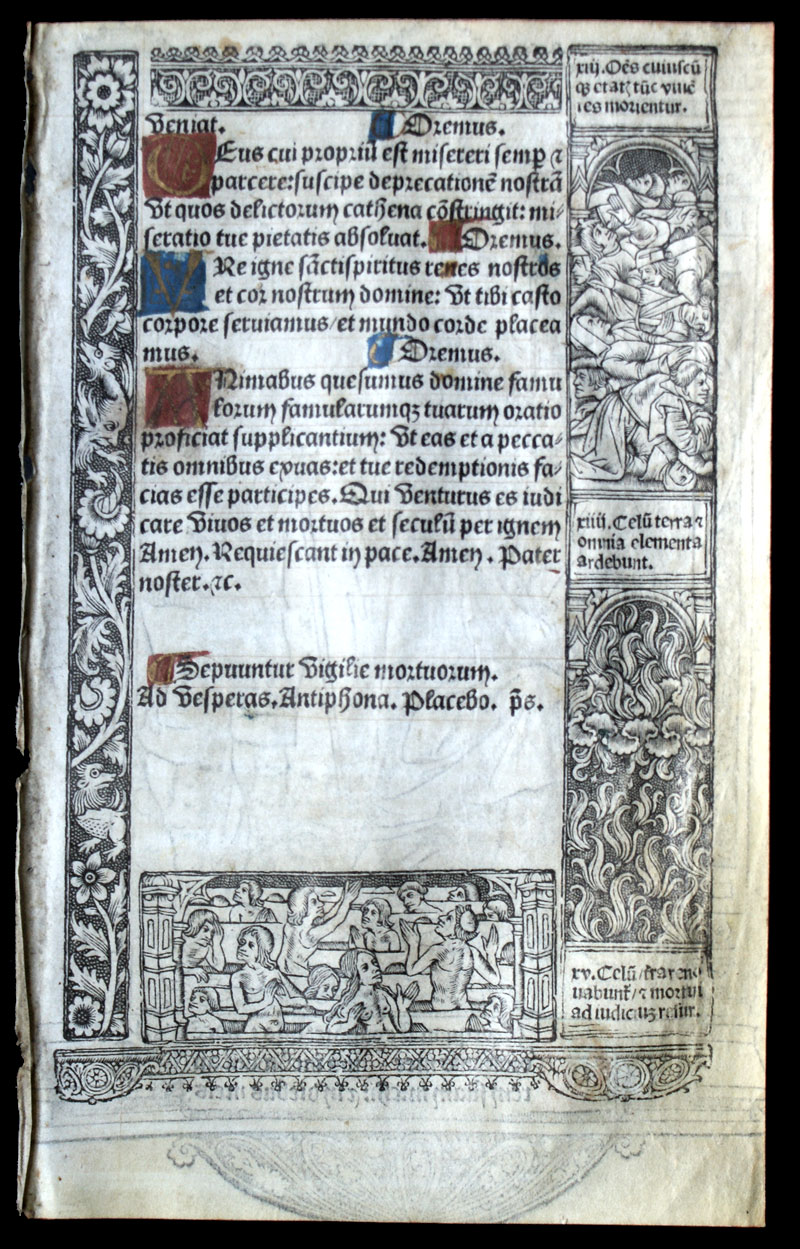 veniat. Oremus.
DEus cui propriũ est misereri semp̲ ⁊
parcere: suscipe deprecationẽ nostrã
Ut quos delictorum cathena cõstringit: mi⸗
seratio tue pietatis absoluat. Oremus.
VRe igne sãctispiritus renes nostros
et cor nostrum domine: Ut tibi casto
corpore seruiamus/et mundo corde placea
mus. Oremus.
ANimabus quesumus domine famu
lorum famularumqꝫ tuarum oratio
proficiat supplicantium: Ut eas et a pecca⸗
tis omnibus exuas: et tue redemptionis fa⸗
cias esse participes. Qui venturus es iudi
care viuos et mortuos et seculũ per ignem
Amen. Requiescant in pace. Amen. Pater
noster. ⁊c.
Sepuuntur vigilie mortuorum.
Ad vesperas. Antiphona. Placebo. p̃s.
xiij. Oẽs cuiuscũ
qꝫ etatꝭ tũc viuẽ
tes morientur.
xiiij. Celũ terra ⁊
omnia elementa
ardebunt.
xv. Celũ/
⁊ mortui
ad